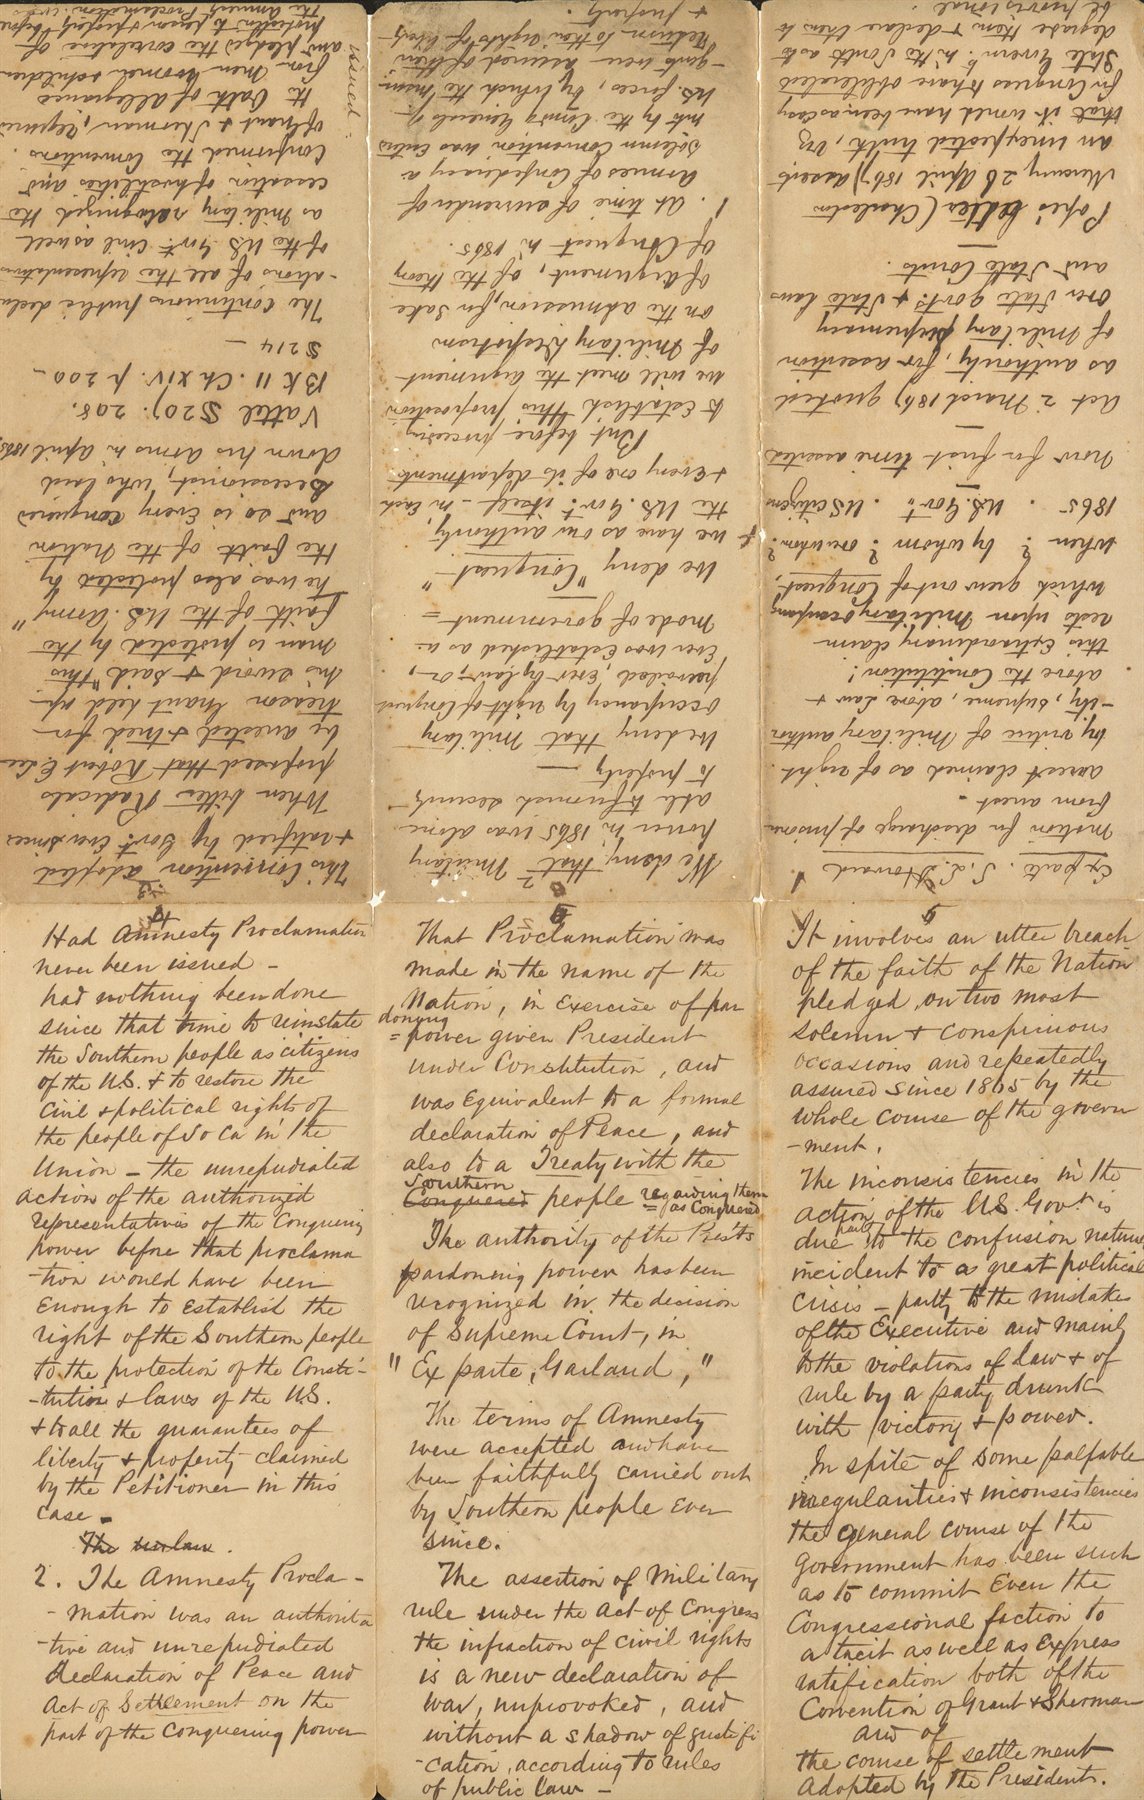 1
Ex parte. S. L. Howard
Motion for discharge of prisoner
from arrest -
arrest claimed as of right
by virtue of Military author
-ity, supreme, above law +
above the Constitution!
this Extraordinary claim
rests upon Military occupancy
which grew out of Conquest,
When? ? by whom? over whom?
1865 . U.S. Govt. . US citizens
Now for first time asserted
Act 2 March 1867 quoted
as authority, for assertion
of Military supremacy
over State govts + State laws
and State Courts.
Pope's letter (Charleston
Mercury, 26 April 1867) assert
an unexpected truth, viz
that it would have been as easy
for Congress to have obliterated
State Governts in the South as to
degrade them + declare them to
be provisional.
2
We deny that Military
power in 1865 was alone
able to furnish security
to property -
We deny that Military
occupancy by right of Conquest
prevailed, ever by law, or,
Ever was Established as a
mode of government =
We deny "Conquest"
+ we have as our authority,
the U.S. Govt. itself - in Each
+ every one of its departments
But before proceeding
to Establish this proposition
we will meet the argument
of Military Despotism
on the admission, for sake
of argument, of the theory
of Conquest in 1865.
1. At time of surrender of
armies of Confederacy a
Solemn Convention was Entered
into by the Comdg Generals of
U.S. forces, by which the
-gents were assured of their
return to their rights of
+ property.
3
This Convention adopted
+ ratified by Govt. Ever since
When bitter Radicals
proposed that Robert E. Lee
be arrested + tried for
treason Grant held up
his sword + said "this
man is protected by the
faith of the U.S. Army"
he was also protected by
the faith of the Nation
and so is Every Conquered
Secessionist, who laid
down his arms in April 1865
Vattel § 207. 208.
BK II. Ch XIV. p 200 -
§ 214 -
The Continuous public decla
-ations of all the representatives
of the U.S. Govt. Civil as well
as Military recognized the
cessation of hostilities and
Confirmed the Conventions
of Grant + Sherman, required
the Oath of allegiance
from men women + children
and pledged the correlative of
protection to person + property before
the Amnesty Proclamation was
issued.
4
Had Amnesty Proclamation
never been issued -
had nothing been done
since that time to reinstate
the Southern people as citizens
of the U.S. + to restore the
civil + political rights of
the people of So Ca in the
Union - the unrepudiated
action of the authorized
representatives of the Conquering
power before that proclama
-tion would have been
Enough to Establish the
right of the Southern people
to the protection of the Consti-
-tution + laws of the U.S.
+ to all the guarantees of
liberty + property claimed
by the Petitioner in this
case -
The
2. The Amnesty Procla-
-mation was an authorita
-tive and unrepudiated
declaration of Peace and
Act of Settlement on the
part of the Conquering power
5
That Proclamation was
made in the name of the
Nation, in Exercise of par
doning
= power given President
under Constitution, and
was Equivalent to a formal
declaration of Peace, and
also to a Treaty with the
Southern
Conquered people regarding them
as Conquered
The authority of the Prest's
pardoning power has been
recognized in the decision
of Supreme Court, in
"Ex parte, Garland,"
The terms of Amnesty
were accepted and have
been faithfully carried out
by Southern people Ever
since.
The assertion of Military
rule under the Act of Congress
the infraction of civil rights
is a new declaration of
war, unprovoked, and
without a shadow of justifi
-cation, according to rules
of public law -
It involves an utter breach
of the faith of the Nation
pledged on two most
solemn + conspicuous
occasions and repeatedly
assured since 1865 by the
whole course of the govern
-ment.
The inconsistencies in the
action of the U.S. Govt. is
due partly to the confusion natural
incident to a great political
crisis - partly to the mistakes
of the Executive and mainly
to the violations of law + of
rule by a party drunk
with victory + power.
In spite of some palpable
irregularities + inconsistencies
the general course of the
Government has been such
as to commit Even the
Congressional faction to
a tacit as well as Express
ratification both of the
Convention of Grant + Sherman
and of
the course of settlement
adopted by the President.